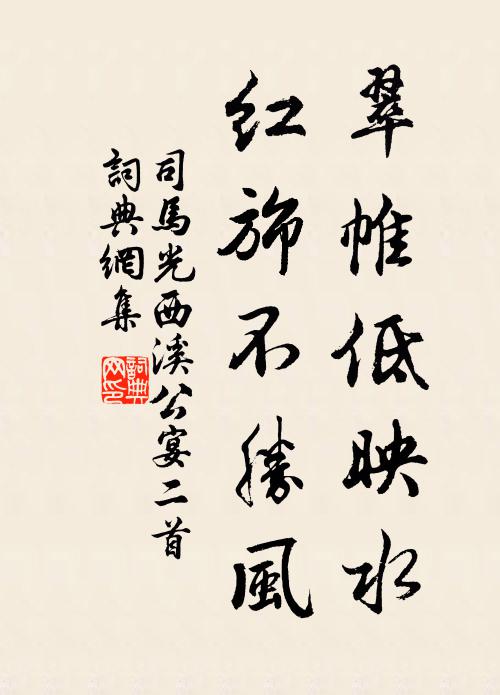 翠帷低映水
紅斾不勝風
司馬光西溪公宴二首
詞典網集
詞典
网印